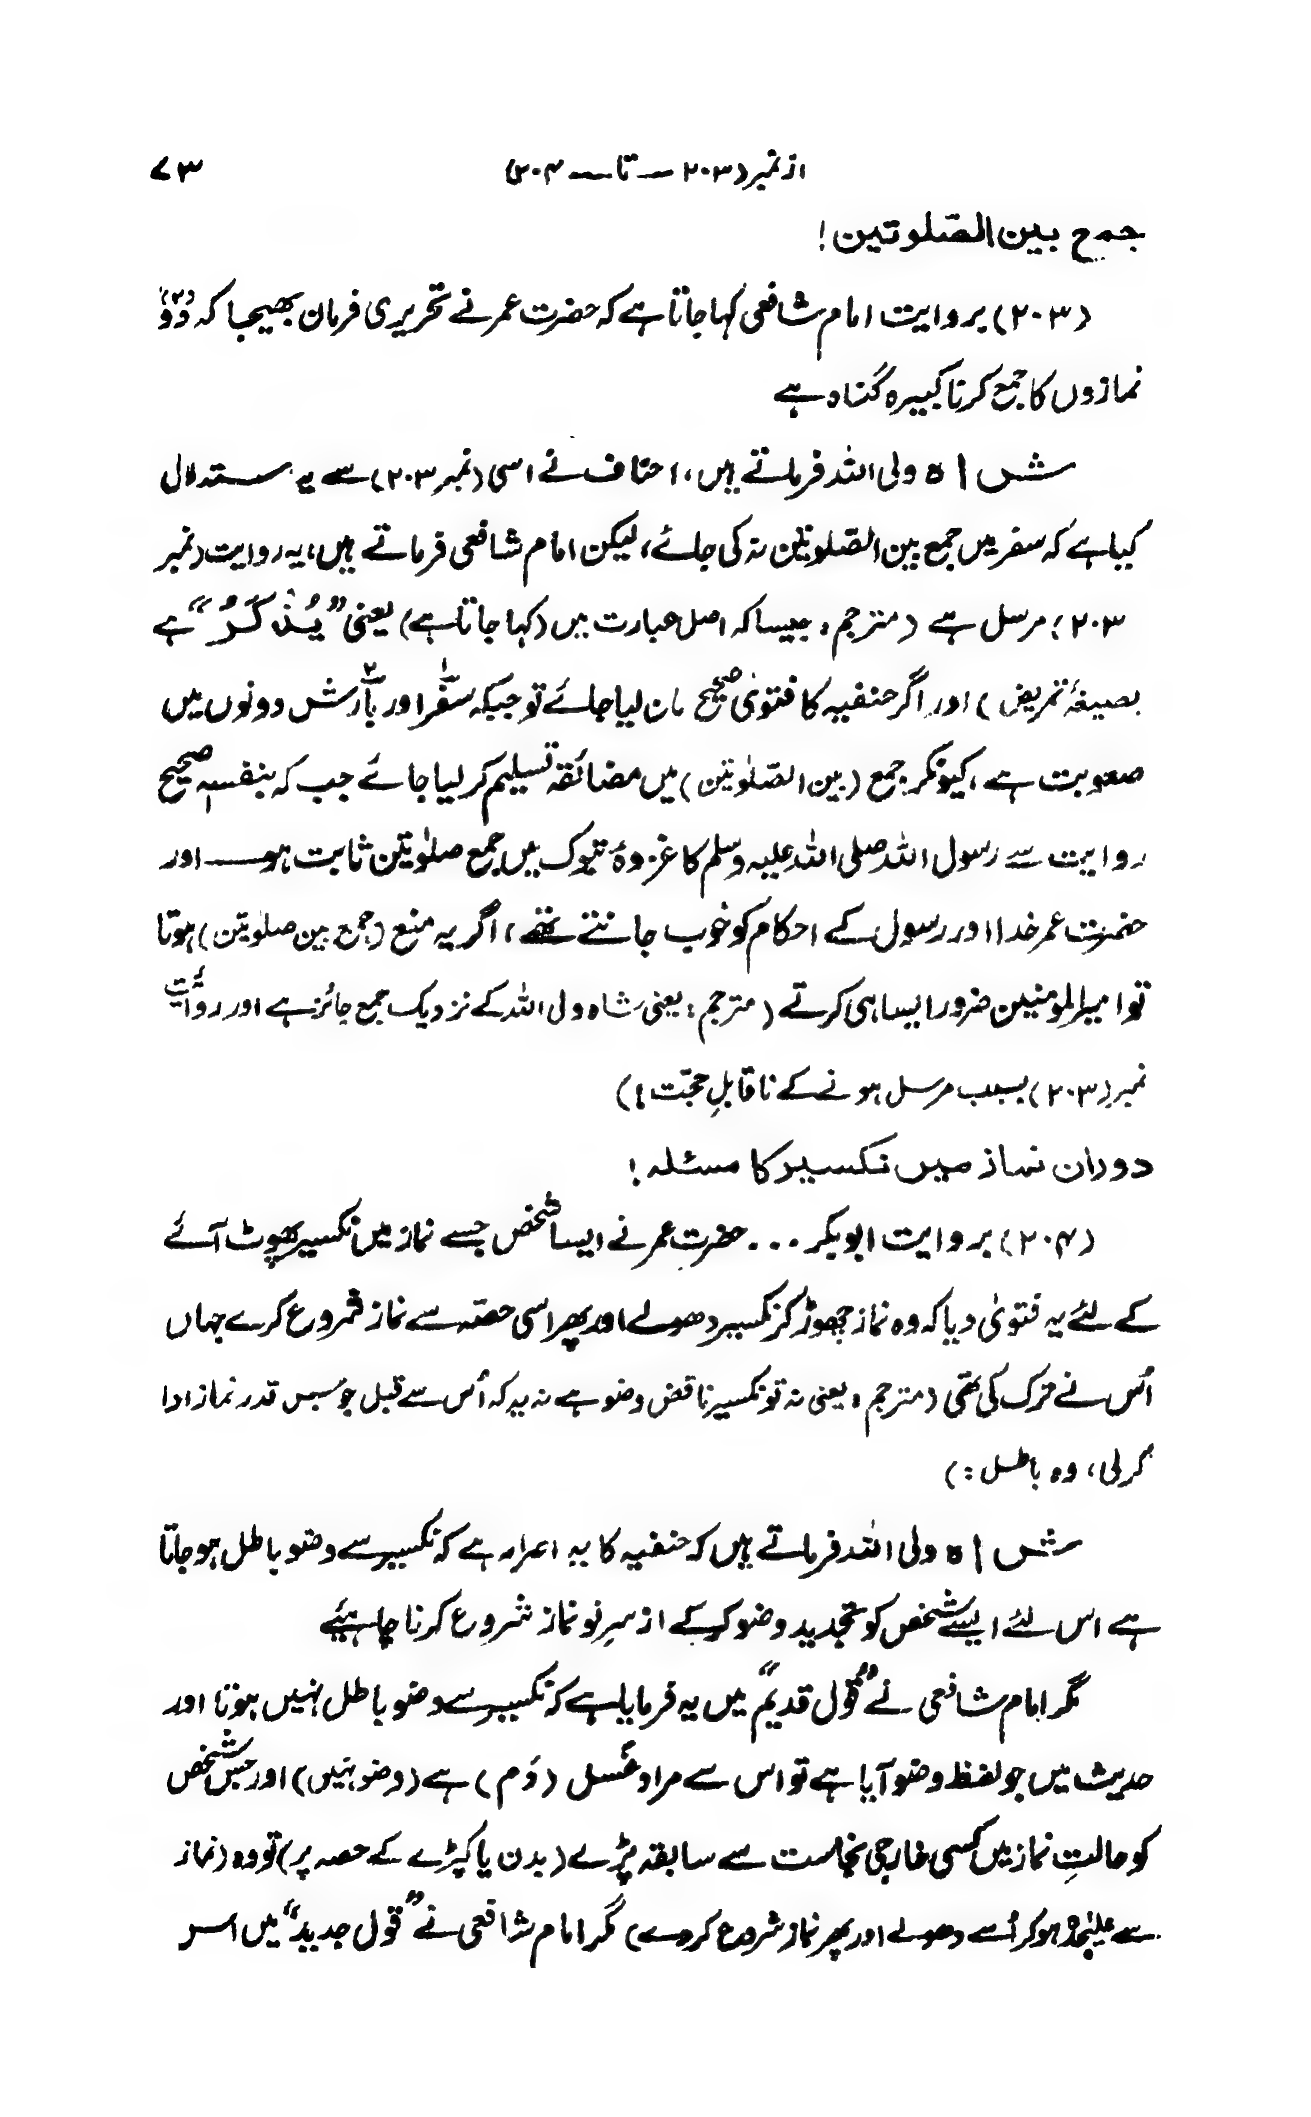 از نمبر (۲۰۳ — تا — ۲۰۴) ۷۳
جمع بین الصّلوتین!
(۲۰۳) بروایت امام شافعی کہا جاتا ہے کہ حضرت عمر نے تحریری فرمان بھیجا کہ دو (۲)
نمازوں کا جمع کرنا کبیرہ گناہ ہے
شاہ ولی اللہ فرماتے ہیں، احناف نے اسی (نمبر ۲۰۳) سے یہ ستدلال
کیا ہے کہ سفر میں جمع بین الصّلوتین نہ کی جائے، لیکن امام شافعی فرماتے ہیں، یہ روایت (نمبر
۲۰۳) مرسل ہے (مترجم: جیسا کہ اصل عبارت میں (کہا جاتا ہے) یعنی ”یُذْکَرُ“ ہے
بصیغۂ تمریض) اور اگر حنفیہ کا فتویٰ صحیح مان لیا جائے تو جبکہ سفر۱ اور بارش۲ دونوں میں
صعوبت ہے، کیونکر جمع (بین الصّلوٰتین) میں مضائقہ تسلیم کر لیا جائے جب کہ بنفسہٖ صحیح
روایت سے رسول اللہ صلی اللہ علیہ وسلم کا غزوۂ تبوک میں جمع صلوٰتین ثابت ہو — اور
حضرت عمر خدا اور رسول کے احکام کو خوب جانتے تھے، اگر یہ منع (جمع بین صلوتین) ہوتا
تو امیر المومنین ضرور ایسا ہی کرتے (مترجم: یعنی شاہ ولی اللہ کے نزدیک جمع جائز ہے اور روایت
نمبر (۲۰۳) بسبب مرسل ہونے کے ناقابلِ حجّت!)
دوران نماز میں نکسیر کا مسئلہ!
(۲۰۴) بروایت ابوبکر ... حضرت عمر نے ایسا شخص جسے نماز میں نکسیر پھوٹ آئے
کے لئے یہ فتویٰ دیا کہ وہ نماز چھوڑ کر نکسیر دھولے اور پھر اسی حصّہ سے نماز شروع کرے جہاں
اُس نے ترک کی تھی (مترجم: یعنی نہ تو نکسیر ناقض وضو ہے نہ یہ کہ اُس سے قبل جو جس قدر نماز ادا
کرلی، وہ باطل:)
شاہ ولی اللہ فرماتے ہیں کہ حنفیہ کا یہ اصرار ہے کہ نکسیر سے وضو باطل ہو جاتا
ہے اس لئے ایسے شخص کو تجدید وضو کرکے از سرِنو نماز شروع کرنا چاہیئے
مگر امام شافعی نے ”قول قدیم“ میں یہ فرمایا ہے کہ نکسیر سے وضو باطل نہیں ہوتا اور
حدیث میں جو لفظ وضو آیا ہے تو اس سے مراد غُسل (دَم) ہے (وضو نہیں) اور جس شخص
کو حالتِ نماز میں کسی خارجی نجاست سے سابقہ پڑے (بدن یا کپڑے کے حصہ پر) تو وہ (نماز
سے علیٰحدہ ہوکر اُسے دھولے اور پھر نماز شروع کردے) مگر امام شافعی نے ”قول جدید“ میں اس